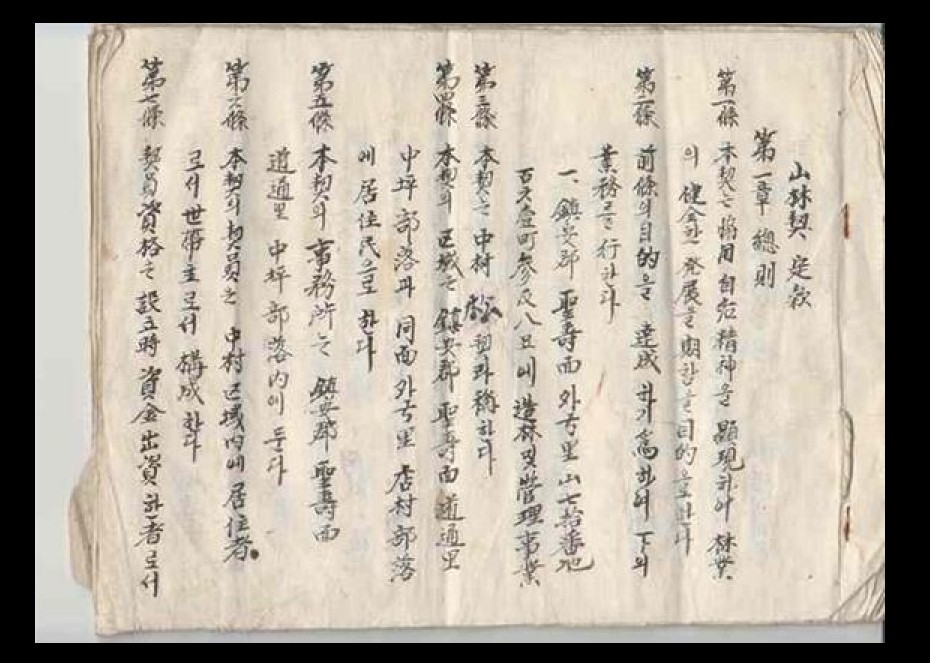 山林契 定款
第一章 總則
第一條 本契는 協同自治精神을 顯現하여 林業
의 健全한 發展을 期함을 目的으로 한다
第二條 前條의 目的을 達成하기 爲하여 下의
業務를 行한다
一、鎭安郡 聖壽面 外弓里 山七拾番地
百 壹町參反八 에 造林 및 營理事業
第三條 本契는 中村 松契라 稱한다
第四條 本契의 區域는 鎭安郡 聖壽面 道通里
中坪部落과 同面 外弓里 店村部落
에 居住民으로 한다
第五條 本契의 事務所는 鎭安郡 聖壽面
道通里 中坪部落內에 둔다
第六條 本契의 契員는 中村区域內에 居住者
로서 世帶主로서 構成한다
第七條 契員資格는 設立時 資金出資한 者로서